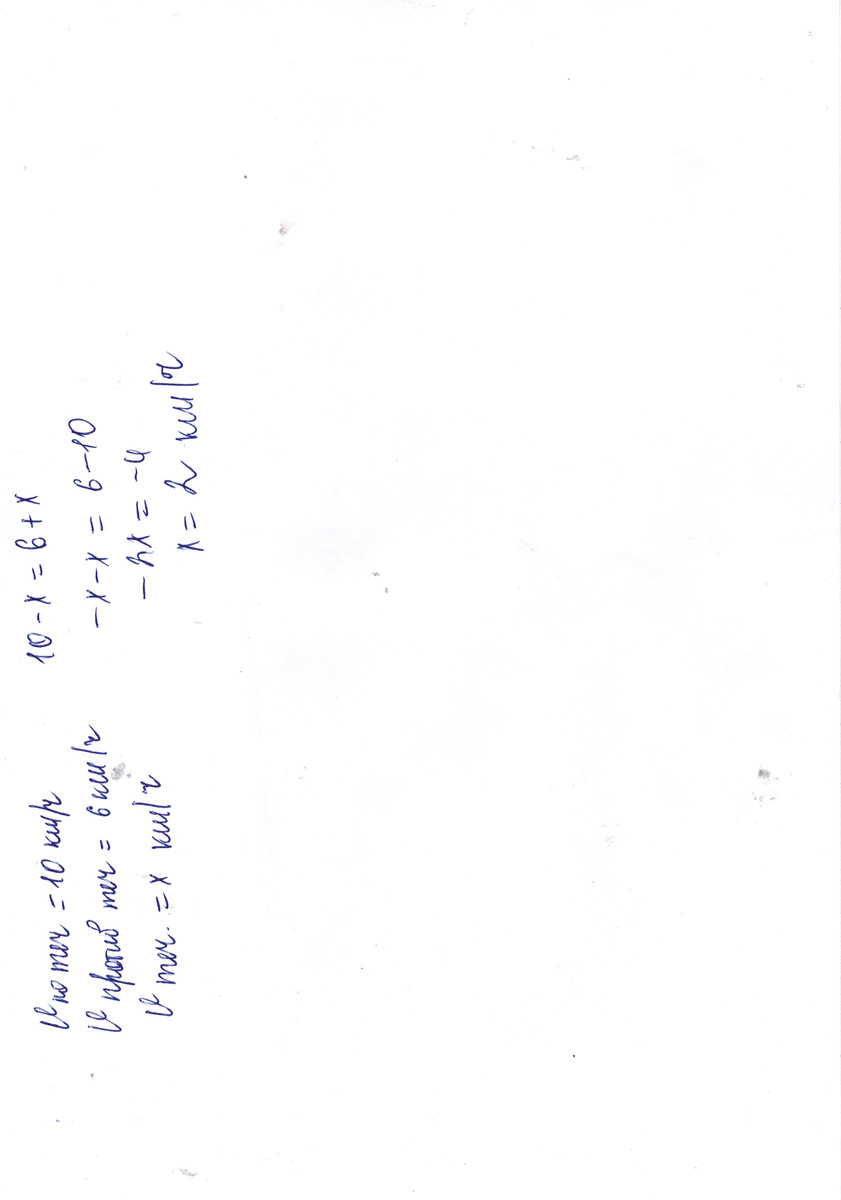 V по теч = 10 км/ч
V против теч = 6 км/ч
V теч. = x км/ч
10 - x = 6 + x
-x - x = 6 - 10
-2x = -4
x = 2 км/ч